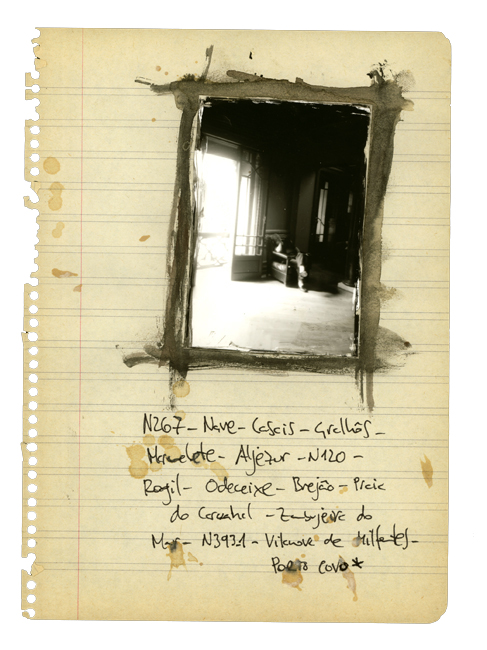 N267 - Nave - Casais - Gralhós -
Marmelete - Aljezur - N120 -
Rogil - Odeceixe - Brejão - Praia
do Carvalhal - Zambujeira do
Mar - N393.1 - Vilanova de Milfontes -
Porto Covo*